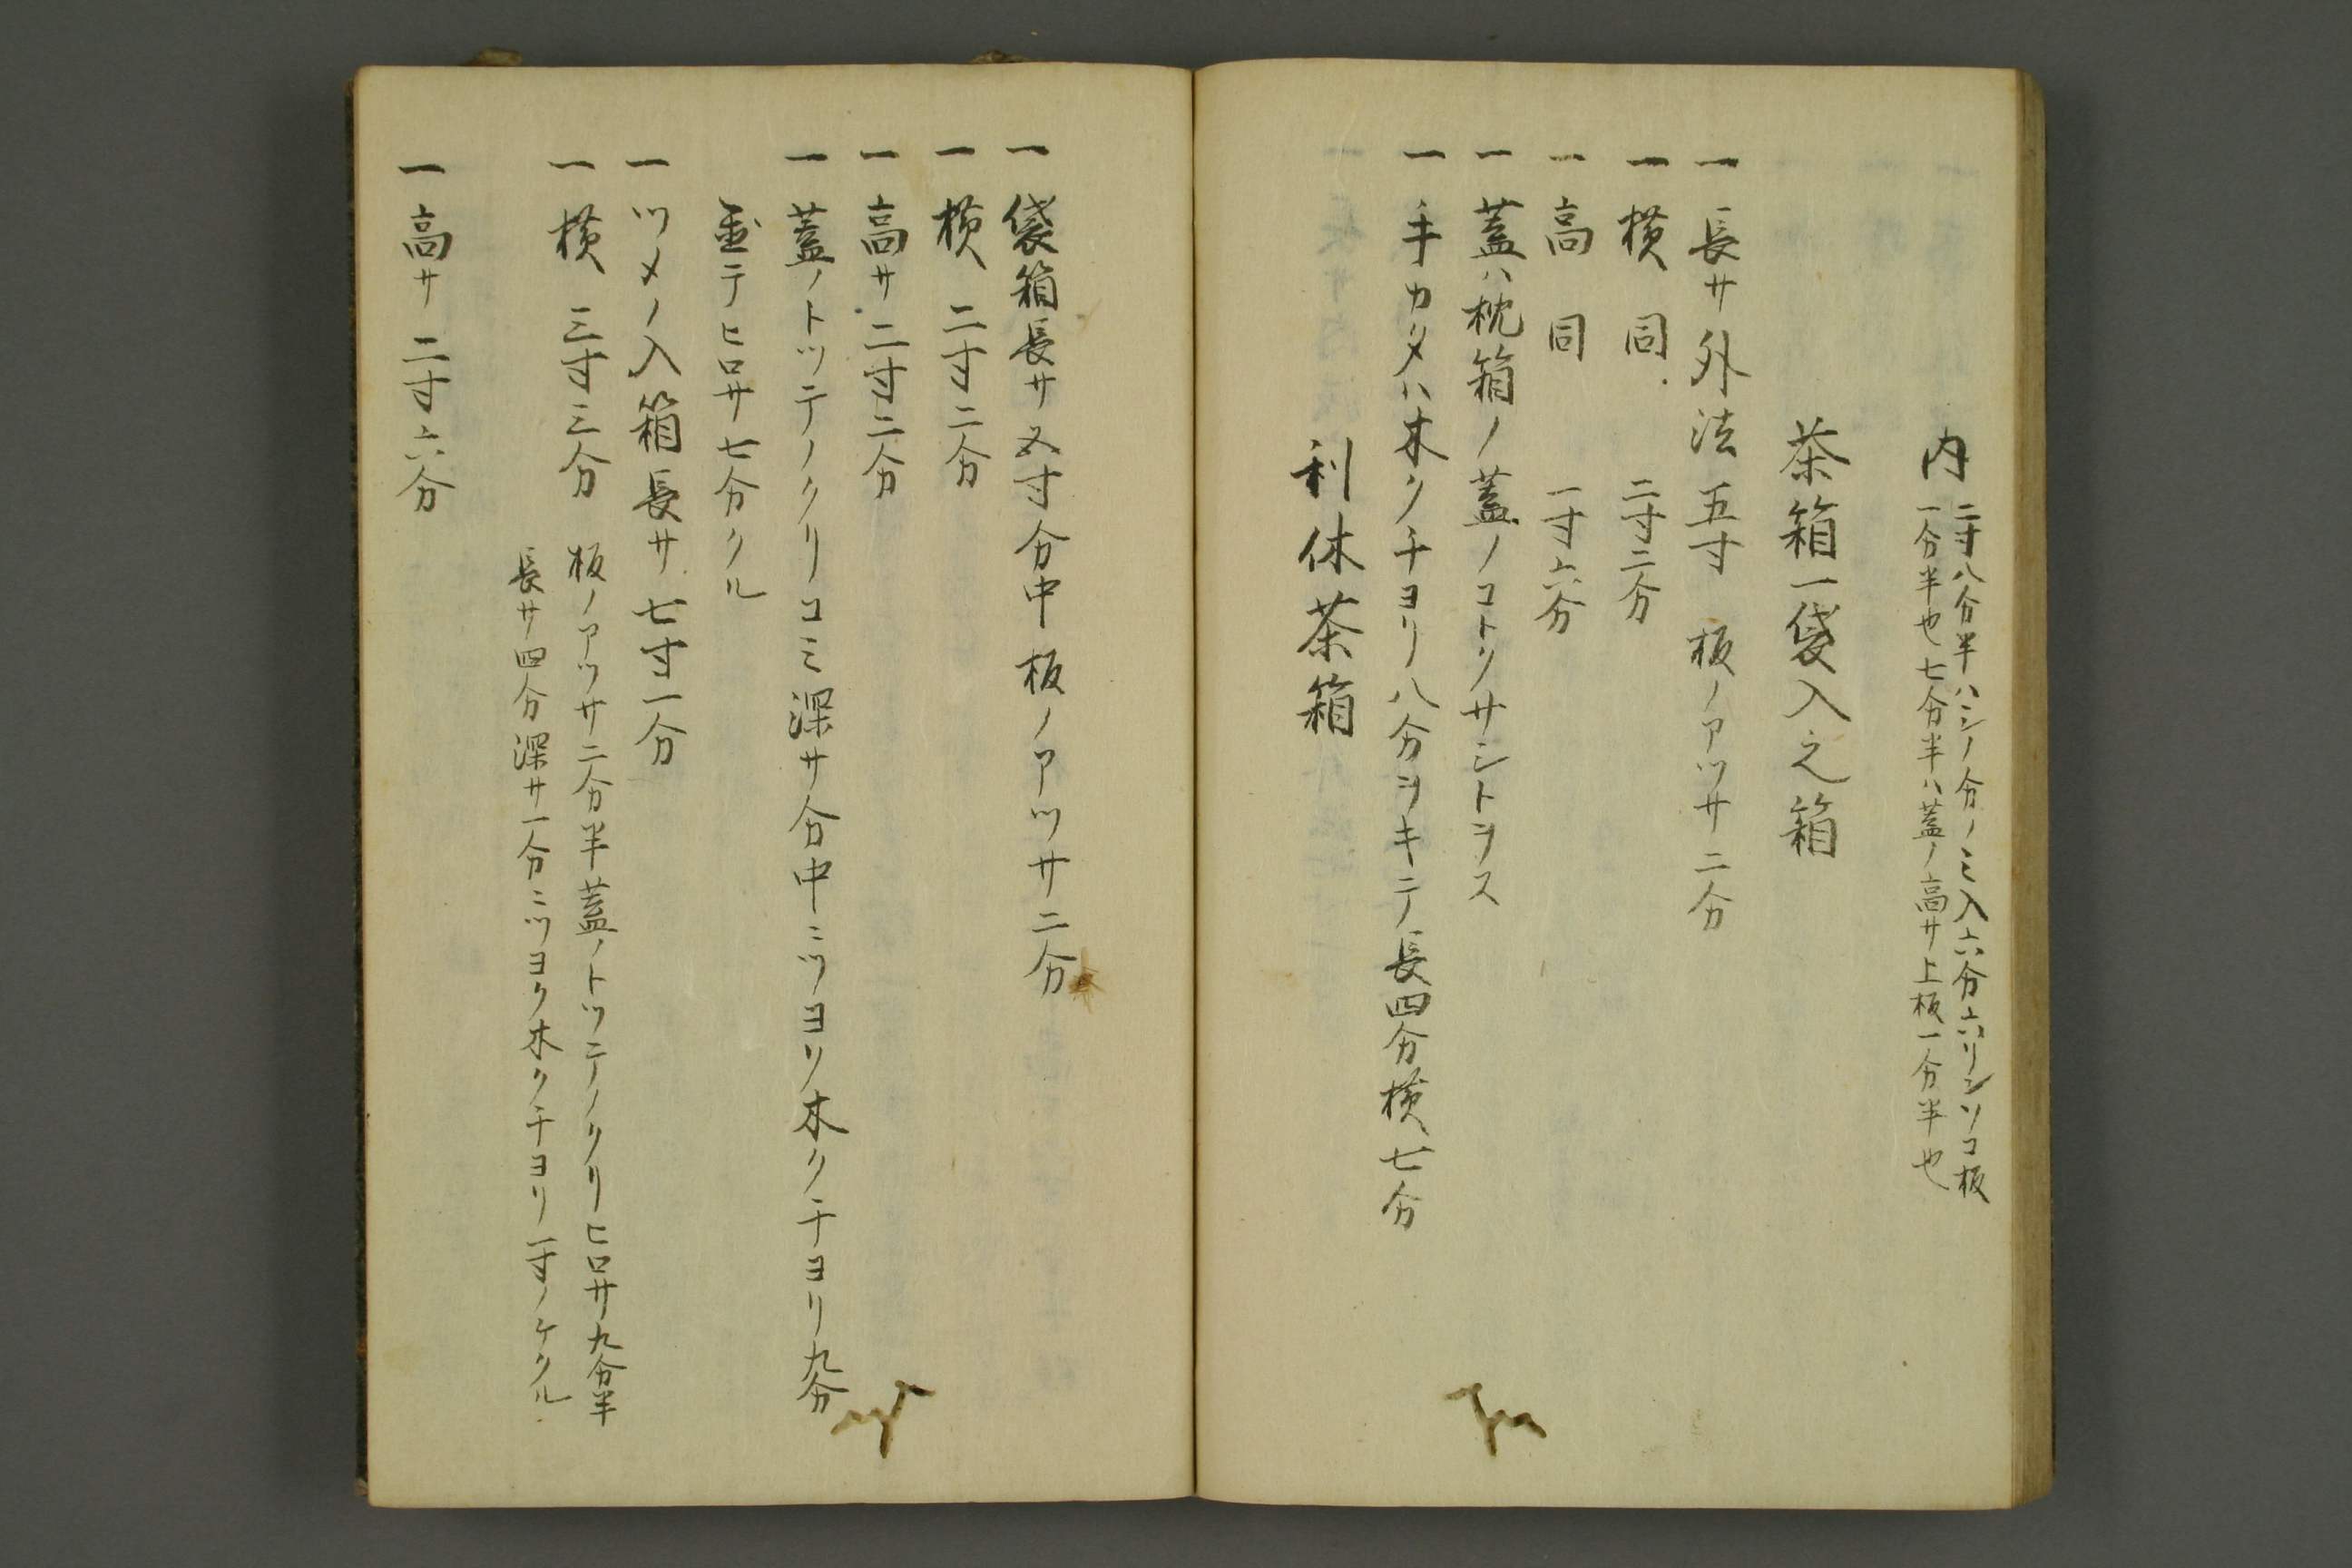 内
二寸八分半ハシノ分ノミ入六分六リンソコ板
一分半也七分半ハ蓋ノ高サ上板一分半也
茶箱一袋入之箱
一長サ外法五寸 板ノアツサ二分
一横 同 二寸二分
一高 同 一寸六分
一蓋ハ枕箱ノ蓋ノコトクサシトヲス
一手カタハ木クチヨリ八分ヲキテ長四分横七分
利休茶箱
一袋箱長サ五寸分中 板ノアツサ二分
一横 二寸二分
一高サ 二寸二分
一蓋ノトツテノクリコミ深サ分中ニツヨリ木クチヨリ九分
並テヒロサ七分クル
一ツメノ入箱長サ七寸一分
一横 三寸三分
板ノアツサ二分半蓋ノトツテノクリヒロサ九分半
長サ四分深サ一分ニツヨク木クチヨリ一寸ノケクル
一高サ 二寸六分